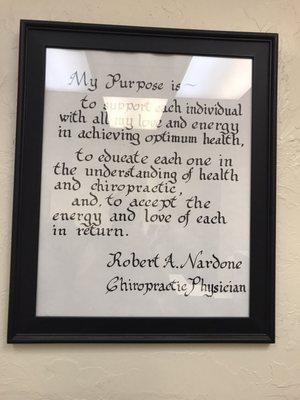 My Purpose is~
to support each individual
with all my love and energy
in achieving optimum health,
to educate each one in
the understanding of health
and chiropractic,
and, to accept the
energy and love of each
in return.
Robert A. Nardone
Chiropractic Physician